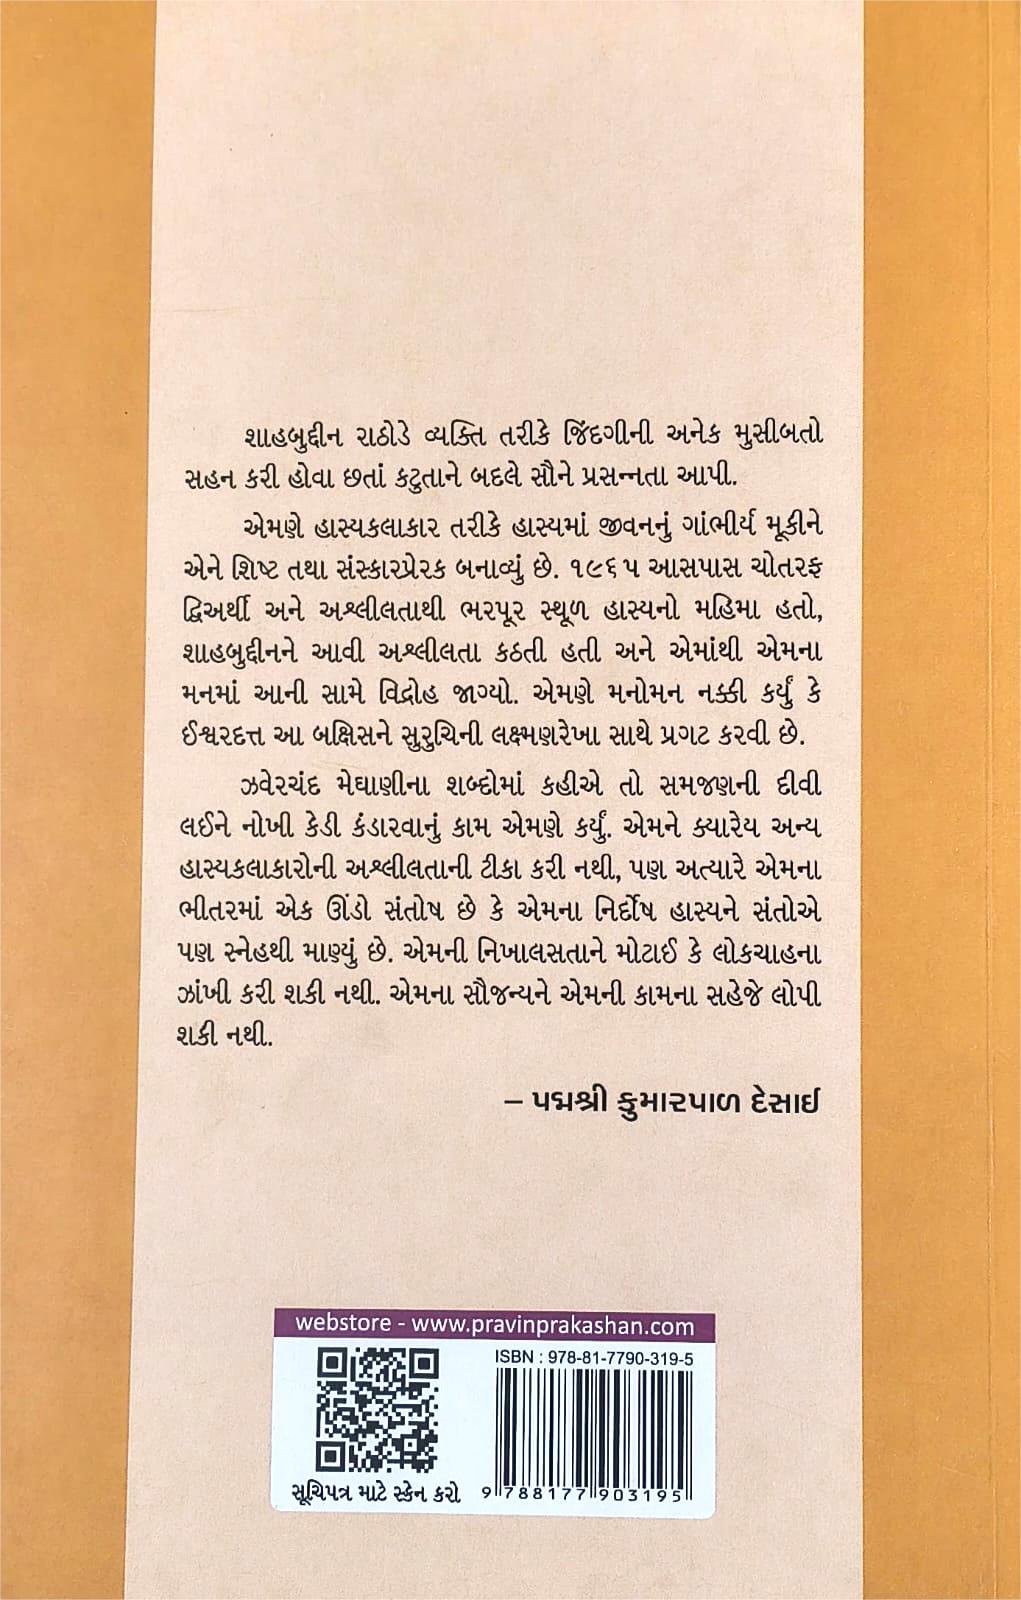 શાહબુદ્દીન રાઠોડે વ્યક્તિ તરીકે જિંદગીની અનેક મુસીબતો
સહન કરી હોવા છતાં કટુતાને બદલે સૌને પ્રસન્નતા આપી.
એમણે હાસ્યકલાકાર તરીકે હાસ્યમાં જીવનનું ગાંભીર્ય મૂકીને
એને શિષ્ટ તથા સંસ્કારપ્રેરક બનાવ્યું છે. ૧૯૬૫ આસપાસ ચોતરફ
દ્વિઅર્થી અને અશ્લીલતાથી ભરપૂર સ્થૂળ હાસ્યનો મહિમા હતો,
શાહબુદ્દીનને આવી અશ્લીલતા કઠતી હતી અને એમાંથી એમના
મનમાં આની સામે વિદ્રોહ જાગ્યો. એમણે મનોમન નક્કી કર્યું કે
ઈશ્વરદત્ત આ બક્ષિસને સુરુચિની લક્ષ્મણરેખા સાથે પ્રગટ કરવી છે.
ઝવેરચંદ મેઘાણીના શબ્દોમાં કહીએ તો સમજણની દીવી
લઈને નોખી કેડી કંડારવાનું કામ એમણે કર્યું. એમને ક્યારેય અન્ય
હાસ્યકલાકારોની અશ્લીલતાની ટીકા કરી નથી, પણ અત્યારે એમના
ભીતરમાં એક ઊંડો સંતોષ છે કે એમના નિર્દોષ હાસ્યને સંતોએ
પણ સ્નેહથી માણ્યું છે. એમની નિખાલસતાને મોટાઈ કે લોકચાહના
ઝાંખી કરી શકી નથી. એમના સૌજન્યને એમની કામના સહેજે લોપી
શકી નથી.
– પદ્મશ્રી કુમારપાળ દેસાઈ
webstore - www.pravinprakashan.com
ISBN : 978-81-7790-319-5
સૂચિપત્ર માટે સ્કેન કરો
9 788177 903195